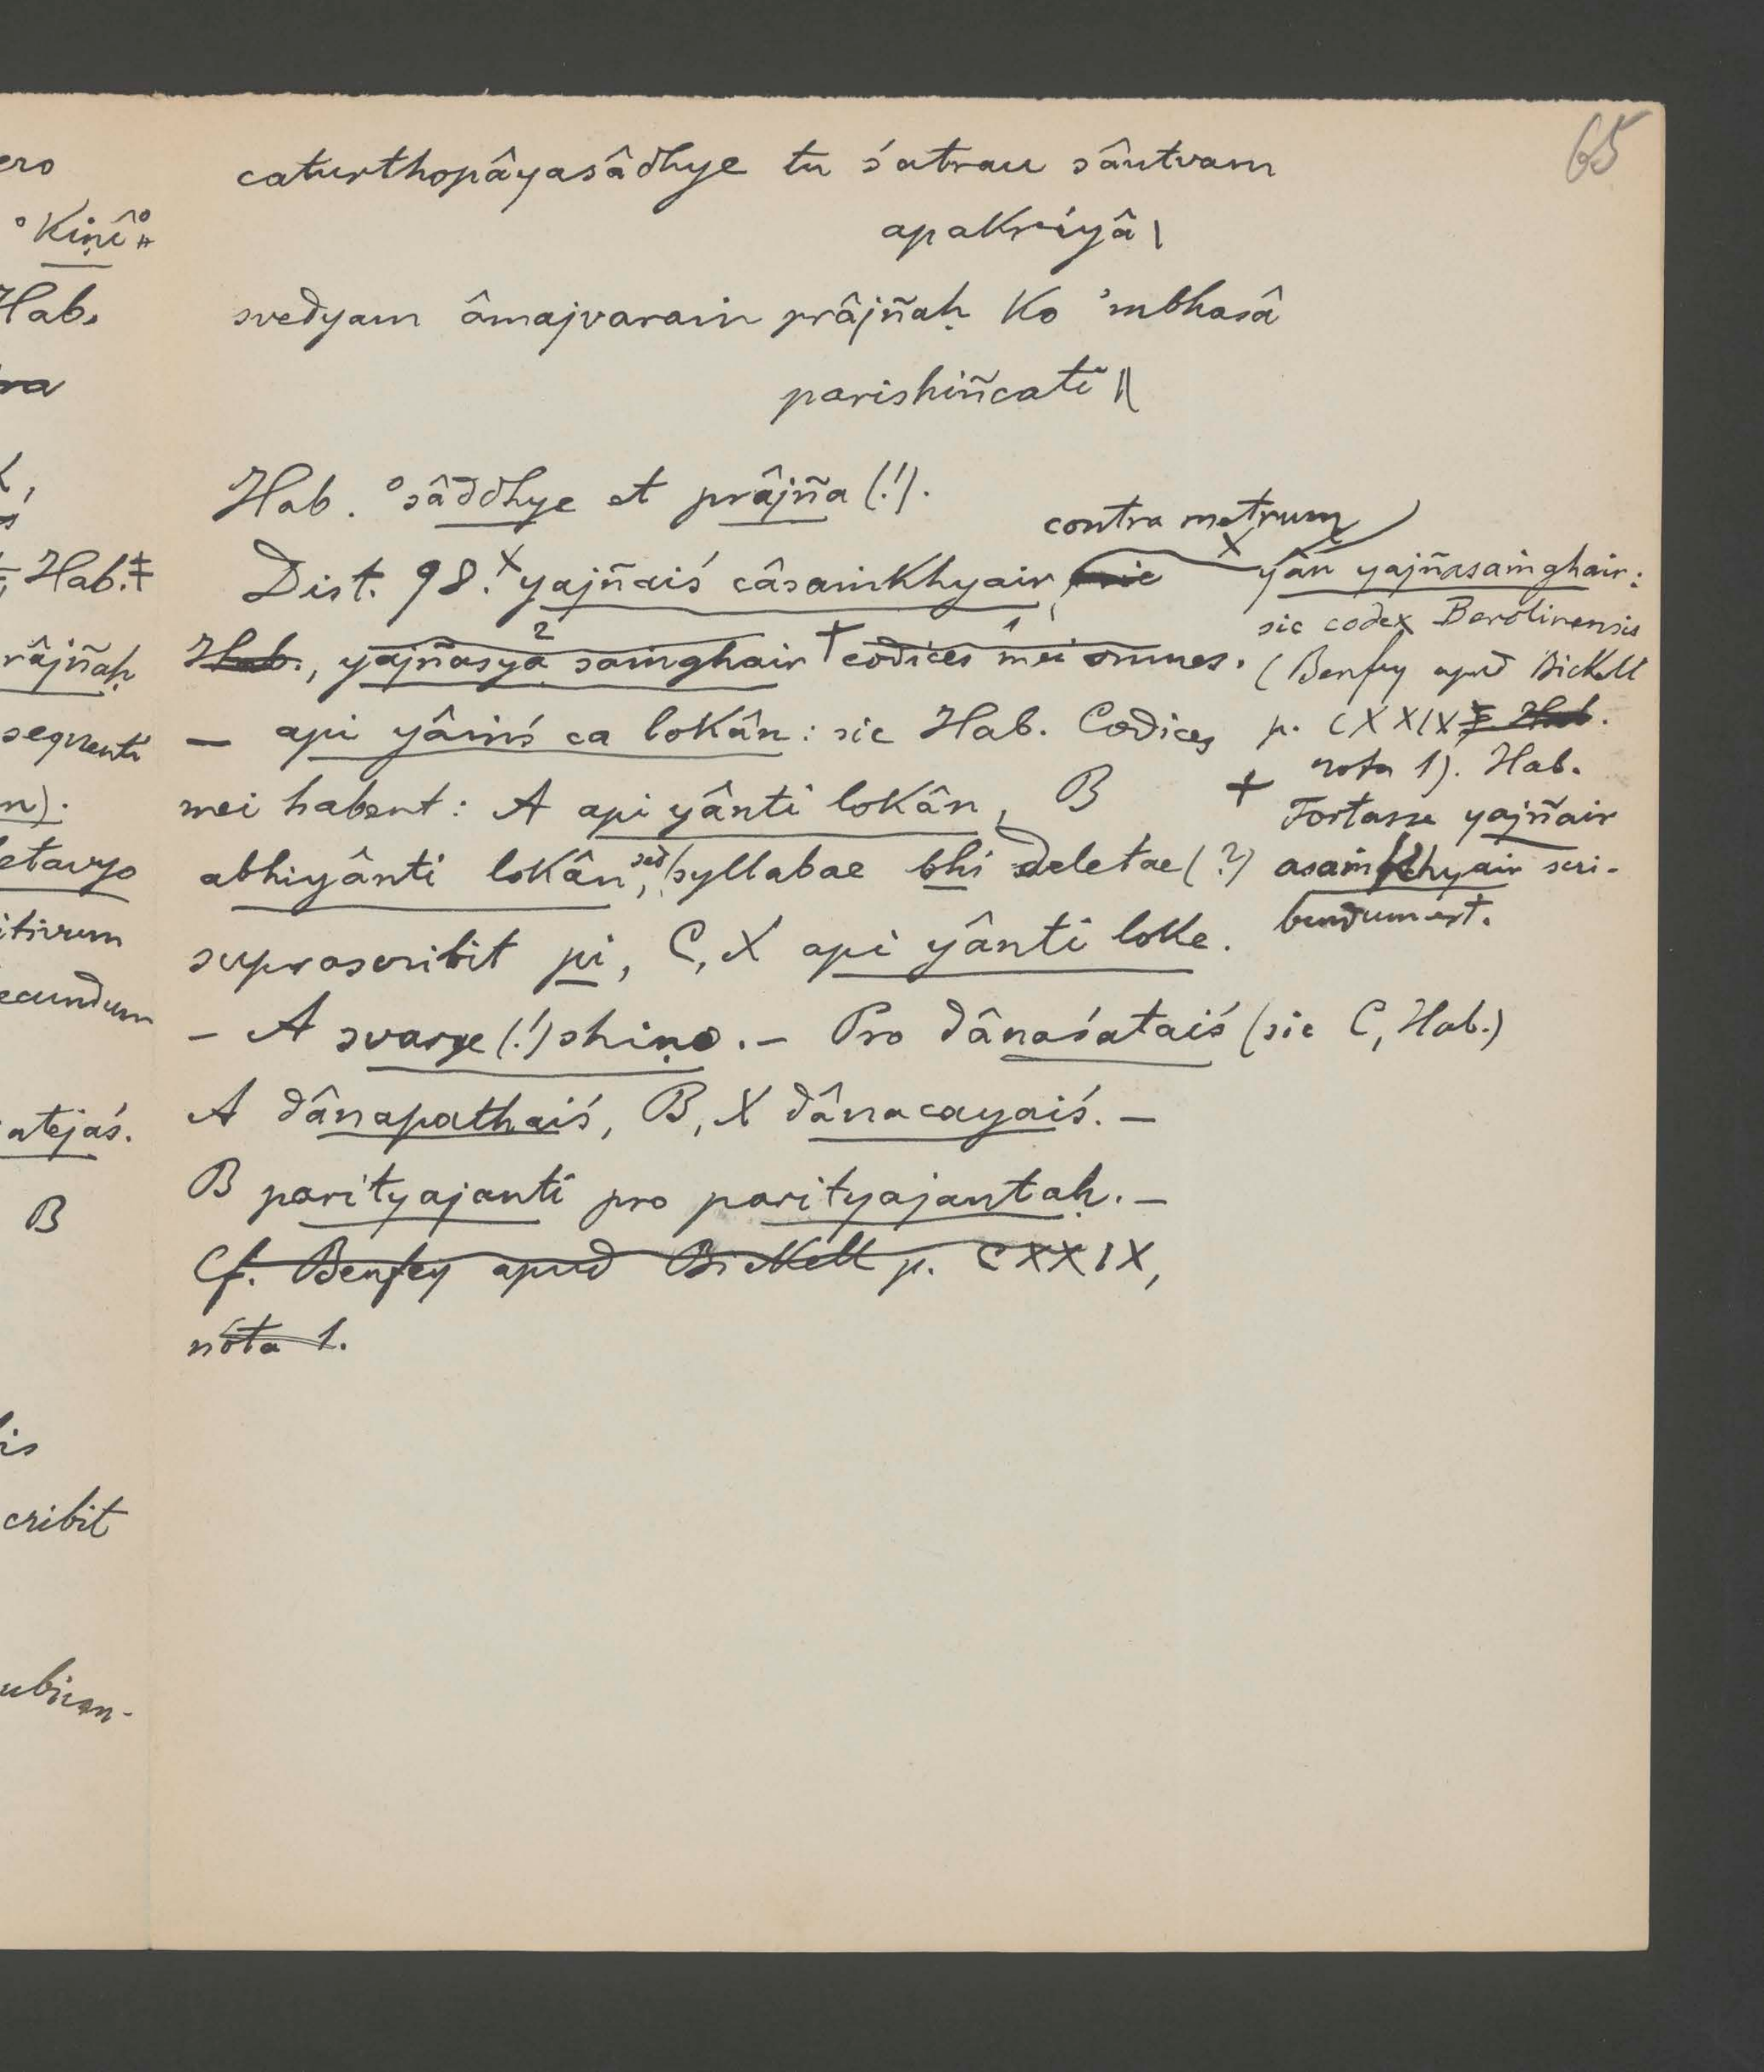 65
caturthopâyasâdhye tu śatrau sântvam
apakriyâ |
svedyam âmajvaraṁ prâjñaḥ ko 'mbhasâ
parishiñcati ||
Hab. °sâddhye et prâjña (!).
contra metrum
Dist. 98. × yajñaiś câsaṁkhyair, sic
Hab., yajñasya saṁghair + codices mei omnes.
2 1
— api yâṁś ca lokân: sic Hab. Codices
mei habent: A api yânti lokân, B
abhiyânti lokân, sed syllabae bhi deletae (?)
suprascribit pi, C, X api yânti loke.
— A svarge (!) shiṇo. — Pro dânaśataiś (sic C, Hab.)
A dânapathaiś, B, X dânacayaiś. —
B parityajanti pro parityajantaḥ. —
Cf. Benfey apud Bickell p. CXXIX,
nota 1.
× yân yajñasaṁghair:
sic codex Berolinensis
(Benfey apud Bickell
p. CXXIX Hab.
nota 1). Hab.
+ Fortasse yajñair
asaṁkhyair scri-
bendum est.
ero
°kiṇî°
Hab.
ra
Hab. ‡
râjñaḥ
sequenti
n).
etavyo
itivum
ecundum
atejaś.
B
is
cribit